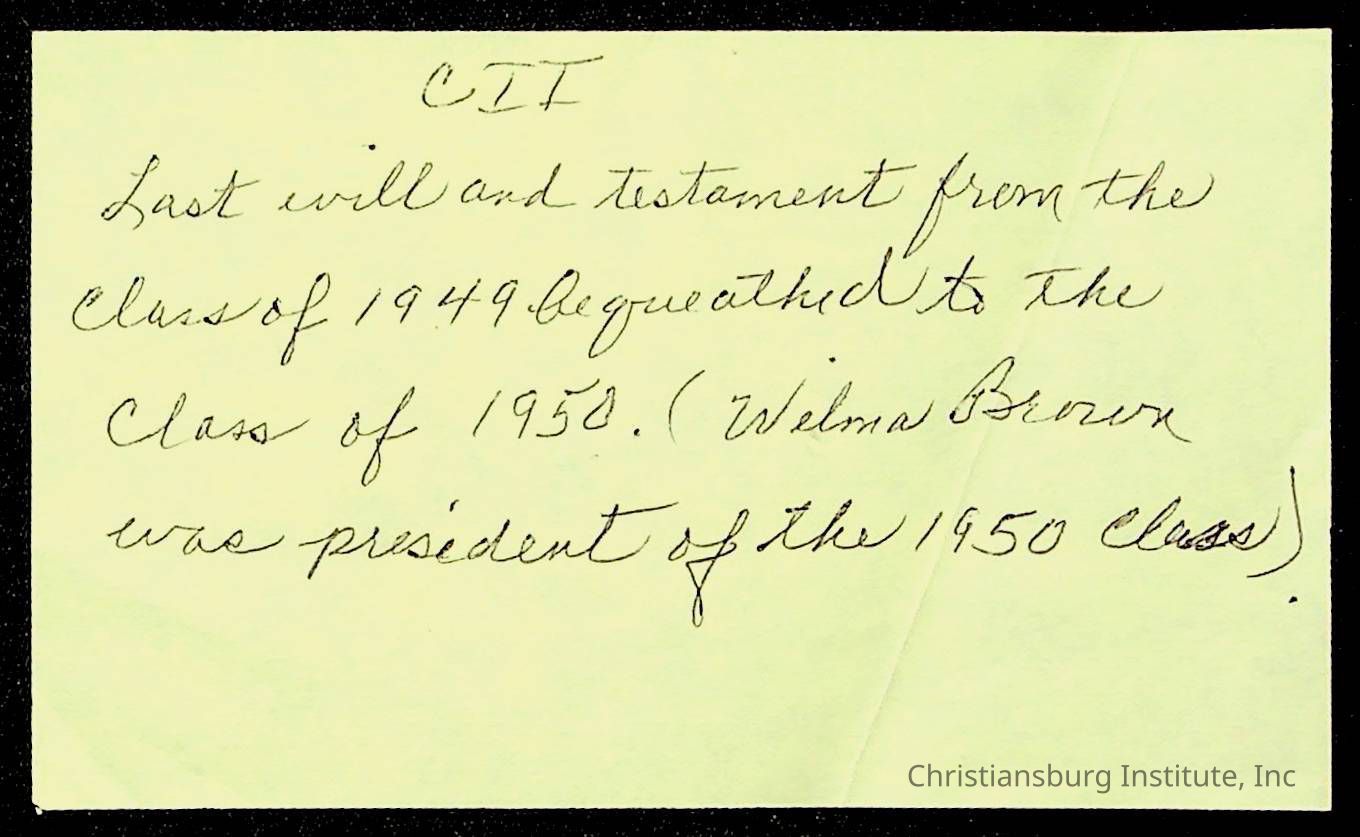 CII
Last will and testament from the
Class of 1949 bequeathed to the
Class of 1950. (Wilma Brown
was president of the 1950 class).
Christiansburg Institute, Inc